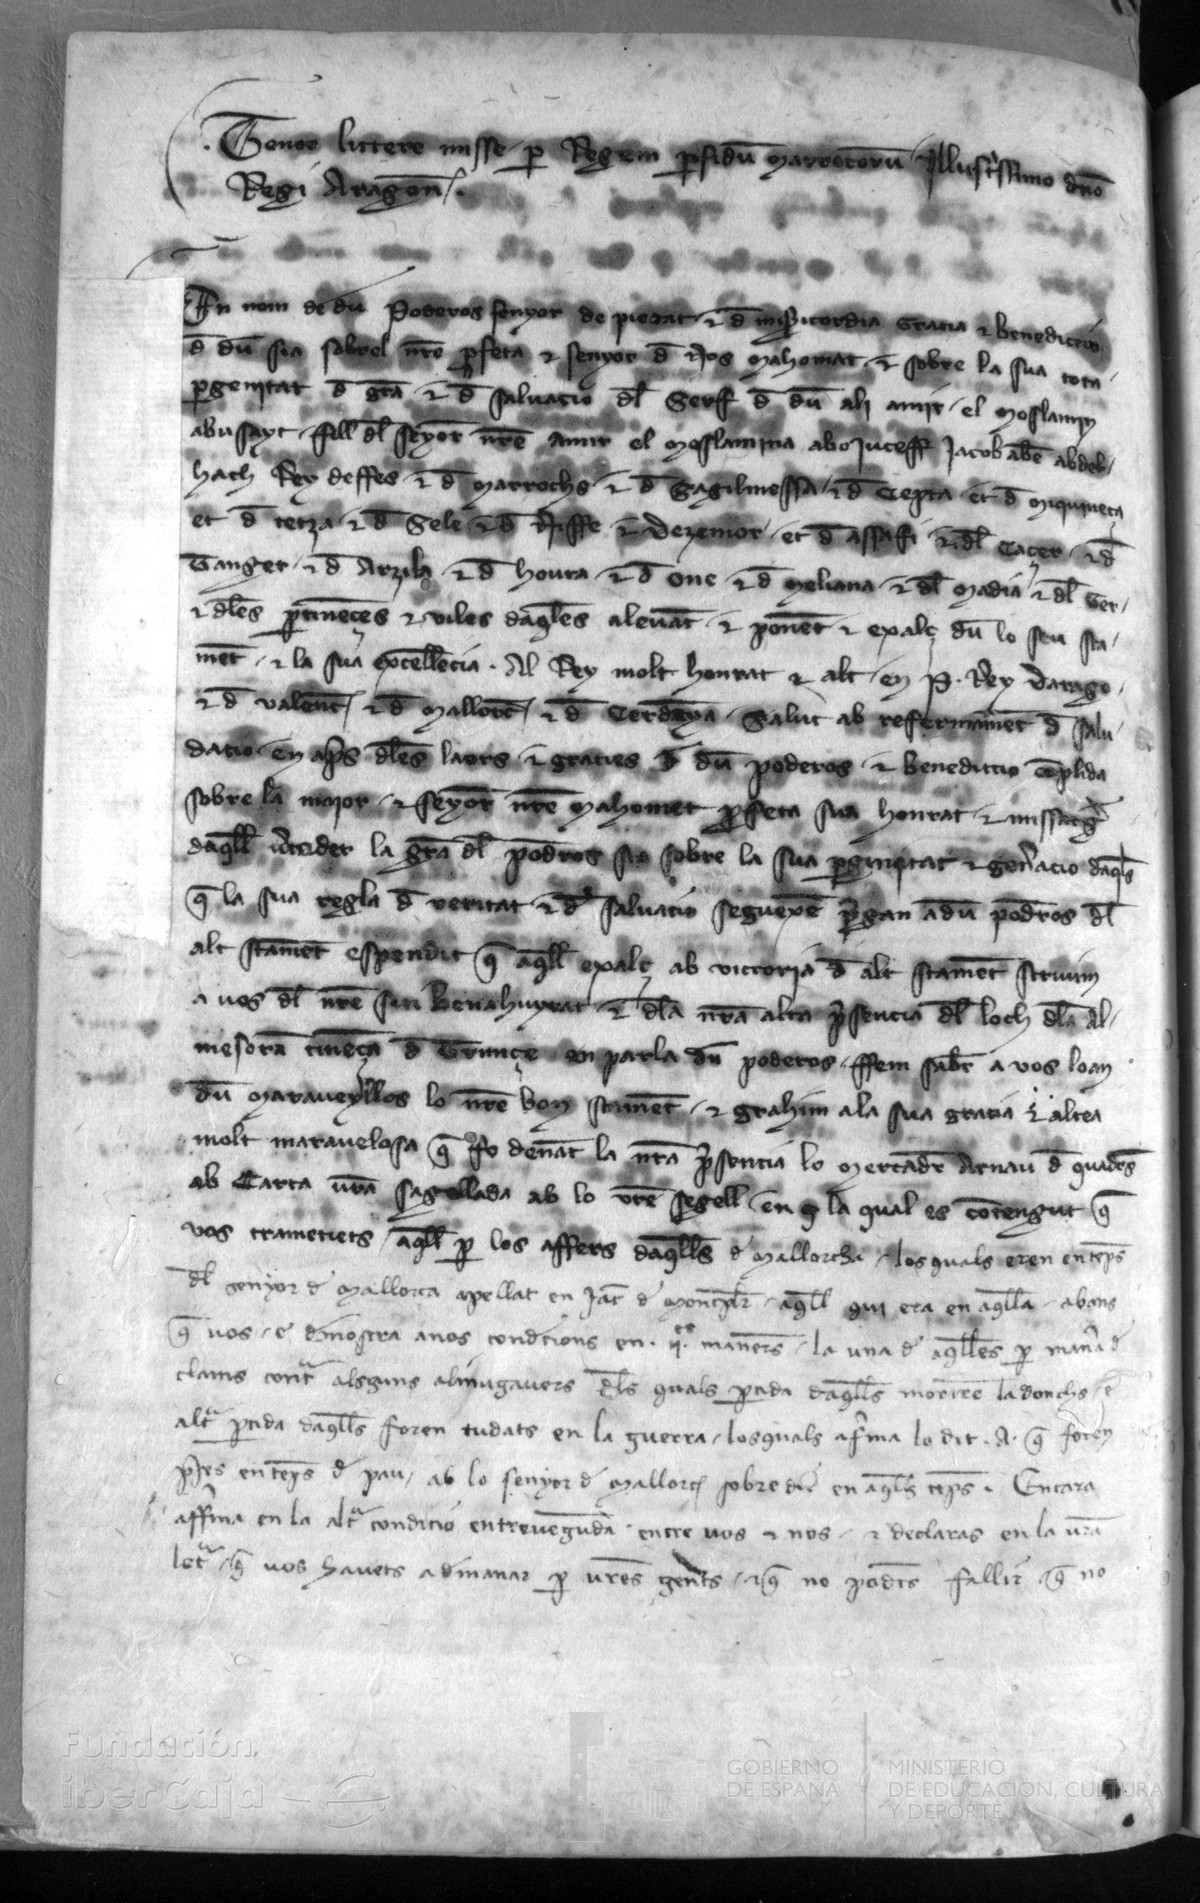 Tenor littere misse p Regem pfidu Marrocoru Illustrissimo dno
Regi Aragon.
En nom de du Poderos senyor de pietat & d misicordia Gracia & benediccio
d du sia sobrel nre pfeta & senyor d nos Mahomat & sobre la sua tota
pgenitat d gra & d saluacio dl Serf d du ali amir el Moslamin
abussayt fill dl seyor nre amir el Moslamina aboJuceff Jacob abe abdel
hach Rey deffes & d Marrochs & d Sagilmessa & d Cepta et d Miquineça
et d tetza & d Sele & d Niffe & Dezemor et d assafi & dl Caçer & d
Tanger & d Arzila & d houra & d One & d Meliana & dl Madia & dl Ger
& dles ptineces & viles daqles aleuat & ponet & exalç du lo seu sta
met & la sua excellecia. Al Rey molt honrat & alt en P. Rey Darago
& d Valenc & d Mallorc & d Cerdeya Salut ab refermamet d salu
dacio en aps dles laors & gracies d du poderos & benediccio coplida
sobre la maior & seyor nre Mahomet pfeta sua honrat & missatg
daqll la gra dl podros sia sobre la sua pginitat & genacio daqls
q la sua regla d veritat & d saluacio seguexe pgan a du podros dl
alt stamet espendit q aqll exalç ab victoria d alt stamet scriuim
a vos dl nre siti Benahuyrat & dla nra alta psencia dl loch dla Al
mesora tineça d en parla du poderos ffem sabr a vos loan
du Maraueyllos lo nre bon stamet & grahim ala sua gracia & altea
molt marauelosa q fo denat la nra psencia lo Mercadr Arnau d quadrs
ab Carta vra sagellada ab lo vre segell en la qual es cotengut q
vos trametets aqll p los affers daqlls de Mallorcha los quals eren en teps
dl senyor de Mallorca apellat en Jac de Montplr aqll qui era en aqlla abans
q vos e dmostra anos condicions en .ii. maners la una de aqlles p mana de
clams cont alsguns almugauers dls quals ptida daqlls morire ladonchs e
alt ptida daqlls foren tudats en la guerra los quals afma lo dit .A. q foren
pses en teps de pau ab lo senyor de Mallorc sobre dit en aqls teps. Encara
affma en la alt condicio entreueguda entre vos & nos & declaras en la vra
letr q vos hauets a dmanar p vres gents & q no podets fallir q no
Fundación
iberCaja
GOBIERNO
DE ESPAÑA
MINISTERIO
DE EDUCACIÓN, CULTURA
Y DEPORTE